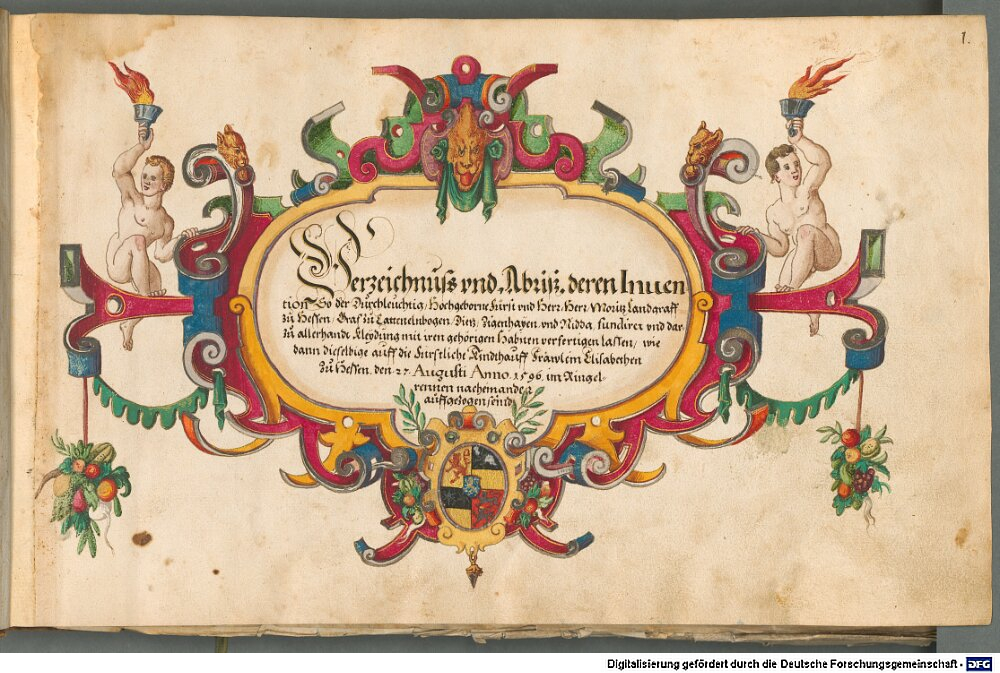 1.
Verzeichnuß vnd Abriß, deren Inuen
tion So der Durchleuchtig, Hochgeborne Fürst vnd Herr, Herr Moritz Landgraff
zu Hessen, Graf zu Catzenelnbogen, Dietz, Zigenhayen, vnd Nidda fundirt vnd dar
zu allerhandt Kleydung mit iren gehörigen Habuen verfertigen lassen, wie
dann dieselbige auff die Fürstliche Kindthauff Fräwlein Elisabethen
zu Hessen, den 27. Augusti Anno 1596, im Ringel-
rennen nacheinander
auffgezogen seind
Digitalisierung gefördert durch die Deutsche Forschungsgemeinschaft - DFG